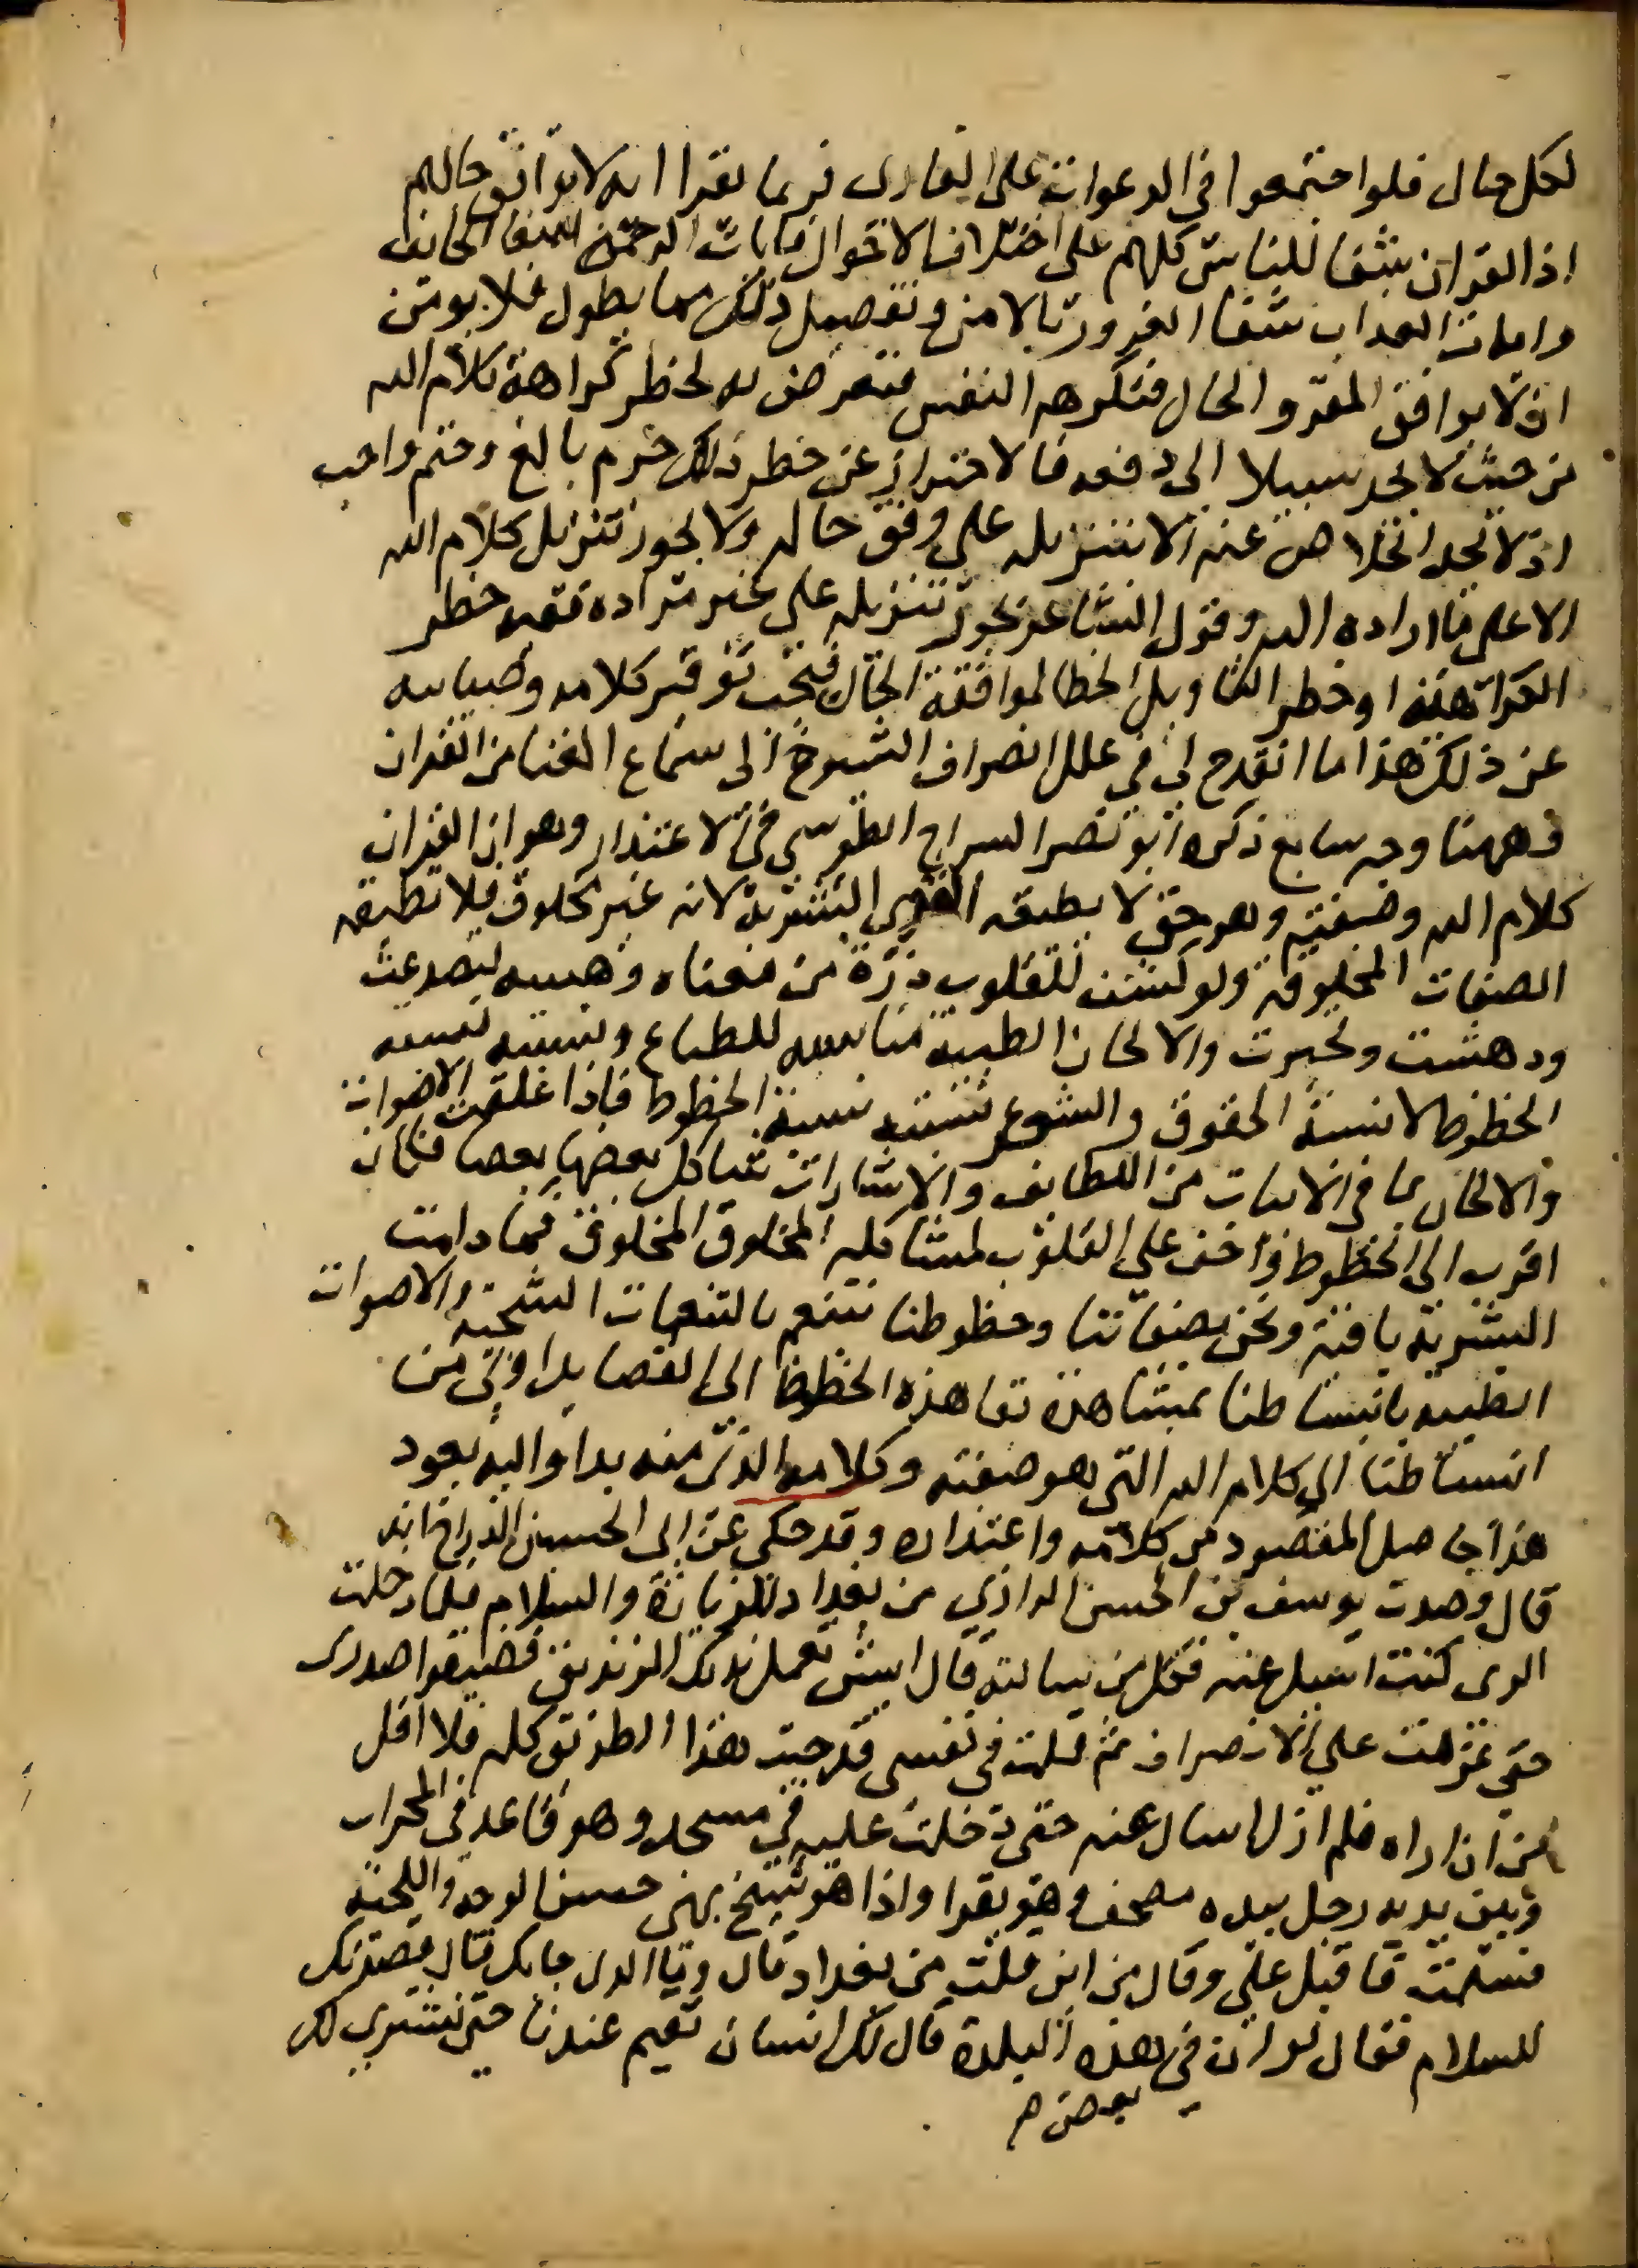 لكل حال فلو اجتمعوا في الدعوات على القارى فربما يقرا ايه لا توافق حالهم
اذ القران شفا للناس كلهم على اختلاف الاحوال فايات الرحمة شفا الخايف
وايات العذاب شفا المغرور بالامن وتفصيل ذلك مما يطول فلا يومن
ان لا يوافق المقرو الحال فتكرهه النفس فيتعرض به لخطر كراهة كلام الله
من حيث لا يجد سبيلا الى دفعه فالاحتراز عن خطر ذلك حزم بالغ وحتم واجب
اذ لا يجد الخلاص عنه الا بتنزيله على وفق حاله ولا يجوز تنزيل كلام الله
الا على ما اراده الله وقول الشاعر يجوز تنزيله على غير مراده ففيه خطر
الكراهة او خطر التاويل الخطا لموافقة الحال فيجب توقير كلامه وصيانته
عن ذلك هذا ما انقدح لي في علل انصراف الشيوخ الى سماع الغنا من القران
وههنا وجه سابع ذكره ابو نصر السراج الطوسي في الاعتذار وهو ان القران
كلام الله وصفته وهو حق لا يطيقه القوى البشرية لانه غير مخلوق فلا تطيقه
الصفات المخلوقة ولو كشف للقلوب ذرة من معناه وهيبته لتصدعت
ودهشت وتحيرت والالحان الطيبة مناسبه للطباع ونسبته نسبه
الحظوظ لا نسبة الحقوق والشعر نسبته نسبة الحظوظ فاذا علقت الاصوات
والالحان بما في الابيات من اللطايف والاشارات شاكل بعضها بعضا فكان
اقرب الى الحظوظ واخف على القلوب لمشاكله المخلوق المخلوق فما دامت
البشريه باقية ونحن بصفاتنا وحظوظنا نتنعم بالنغمات الشجية والاصوات
الطيبه فانبساطنا بمشاهدة بقا هذه الحظوظ الى القصايد اولى من
انبساطنا الي كلام الله التي هو صفته وكلامه الذى منه بدا واليه يعود
هذا حاصل المقصود من كلامه واعتذاره وقد حكى عن ابى الحسين الدراج انه
قال قصدت يوسف بن الحسين الرازي من بغداد للزيارة والسلام فلما دخلت
الرى كنت اسيل عنه فكل من سالته قال ايش تعمل بذلك الزنديق فضيقوا صدرى
حتى عزمت على الانصراف ثم قلت في نفسى قد جيت هذا الطريق كله فلا اقل
من ان اراه فلم ازل اسال عنه حتى دخلت عليه في مسجد وهو قاعد في المحراب
وبين يديه رجل بيده مصحف وهو يقرا واذا هو شيخ بهى حسن الوجه واللحية
فسلمت فاقبل علي وقال من اين قلت من بغداد قال وما الذى جابك فقال قصدتك
للسلام فقال لو ان في هذه البلدة قال لك انسان تقيم عندنا حتى نشترى لك